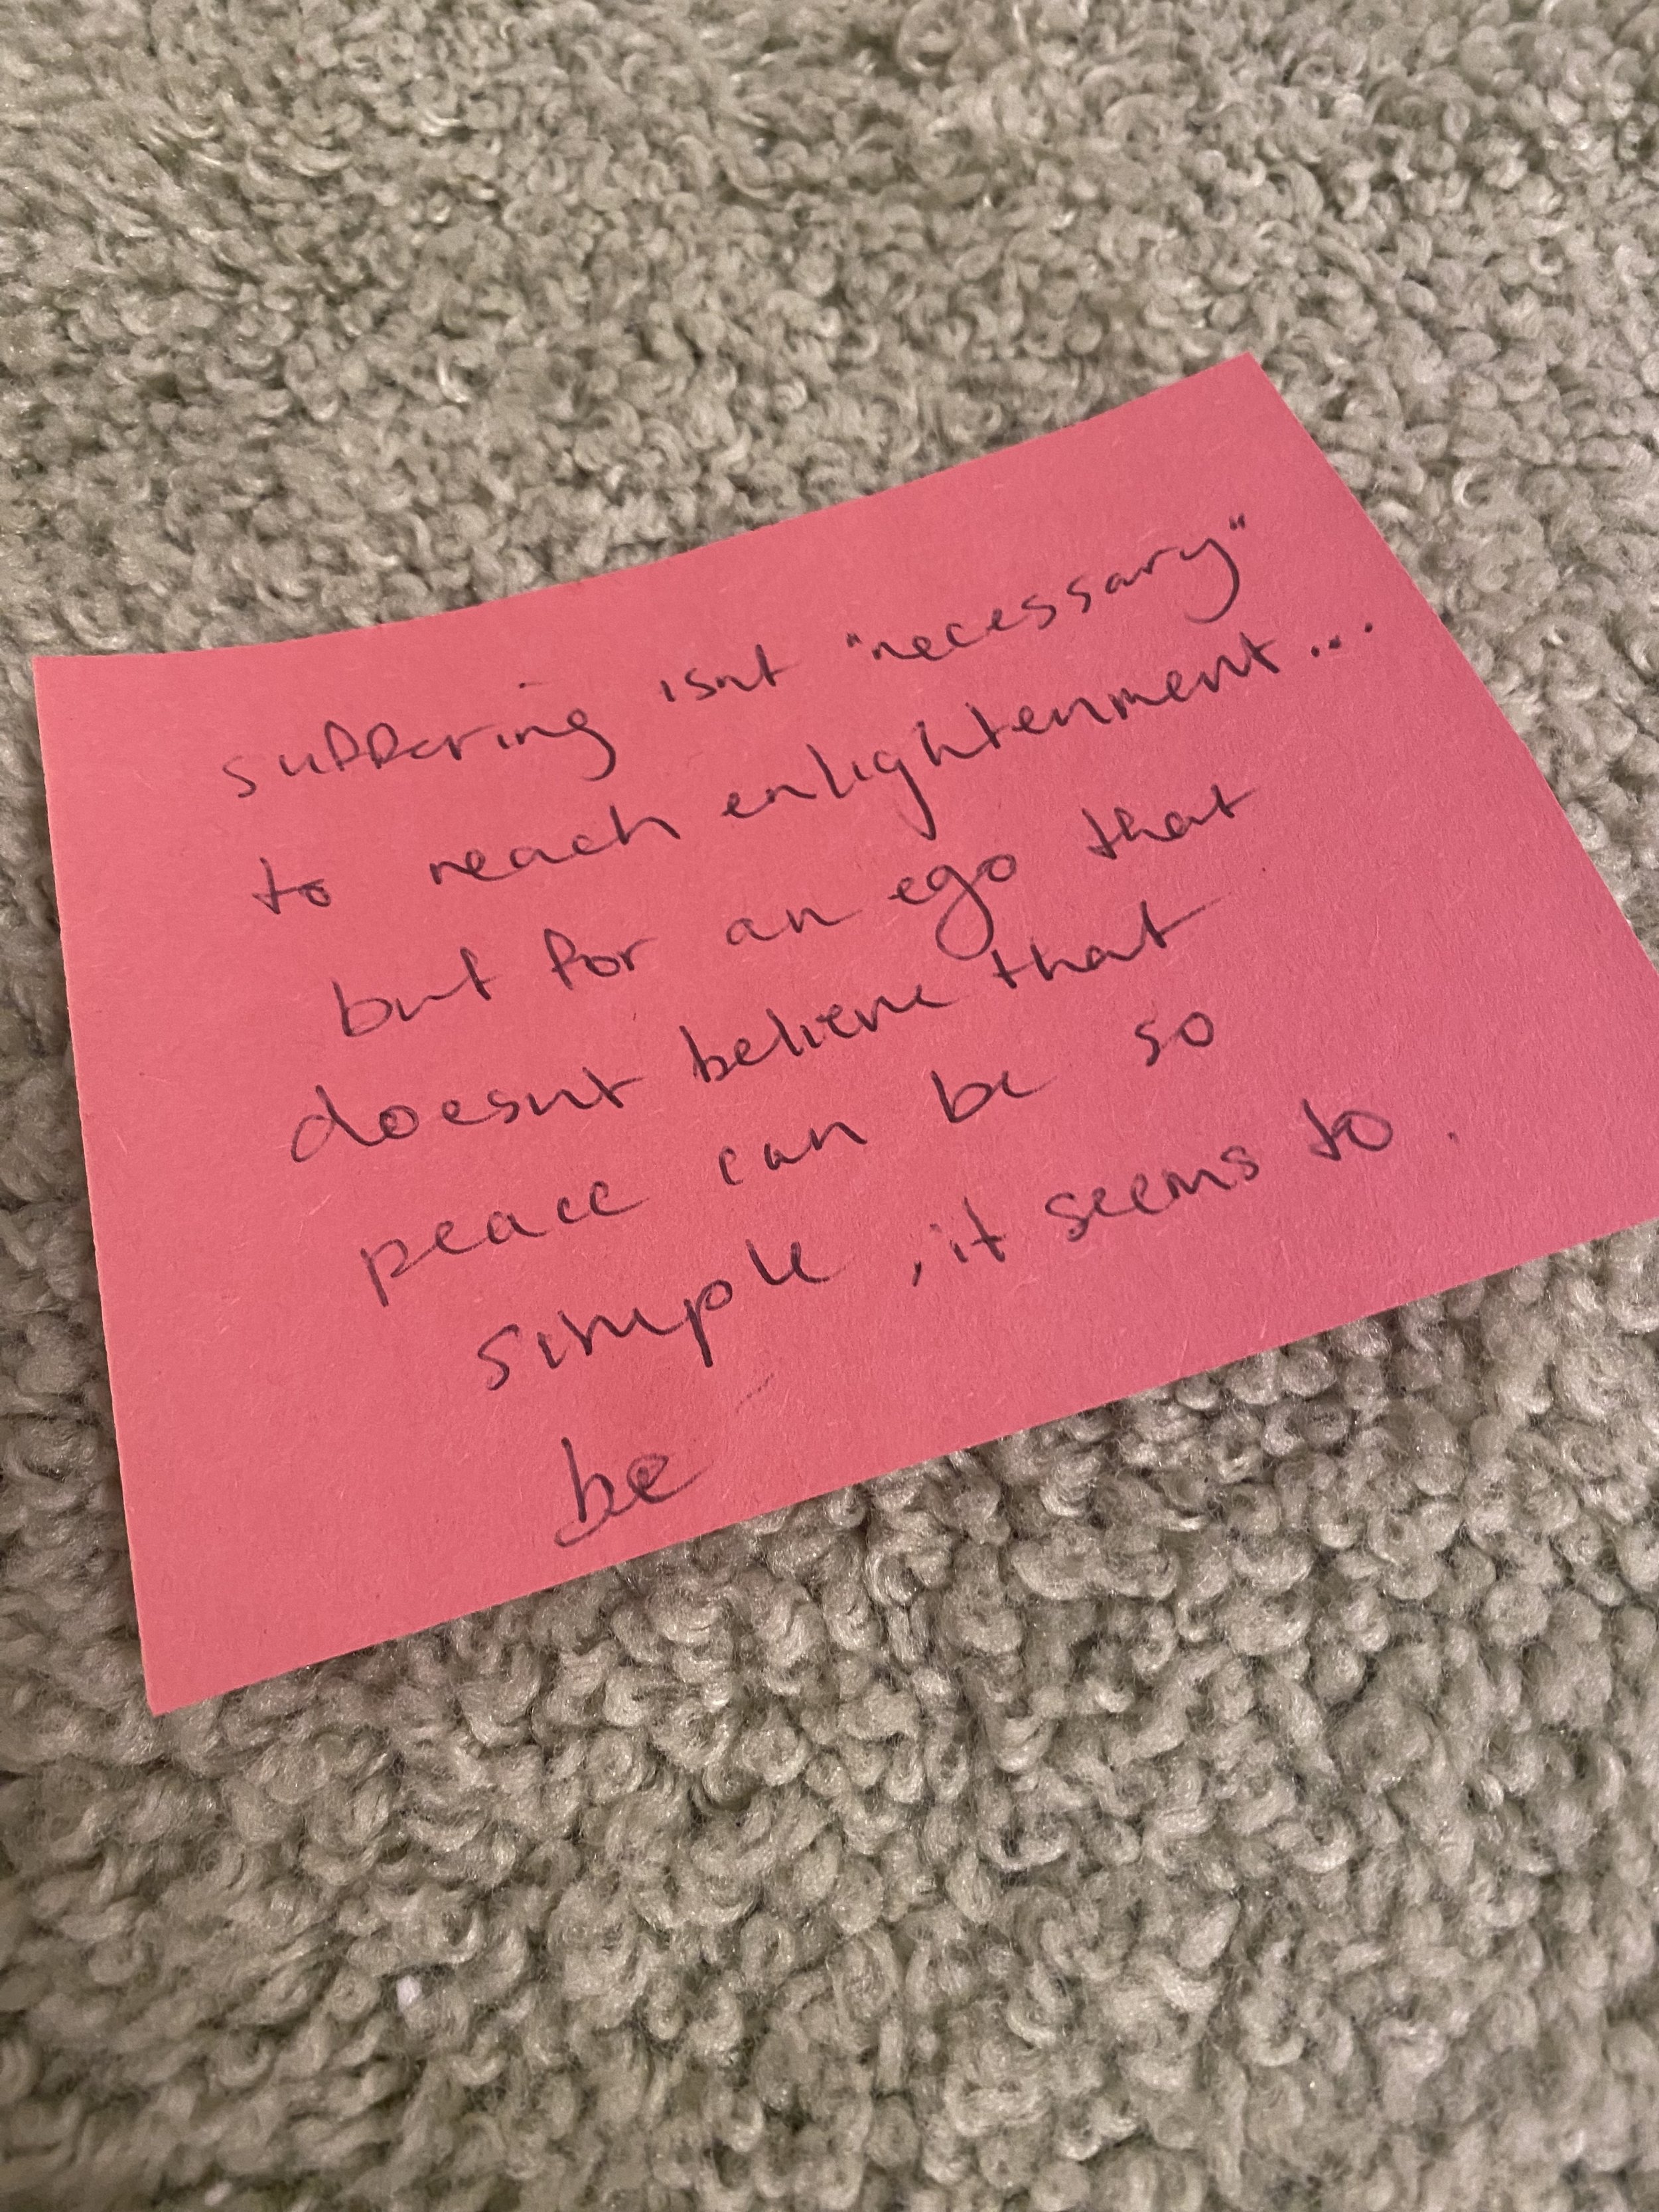 suffering isnt "necessary"
to reach enlightenment...
but for an ego that
doesnt believe that
peace can be so
simple, it seems to.
be